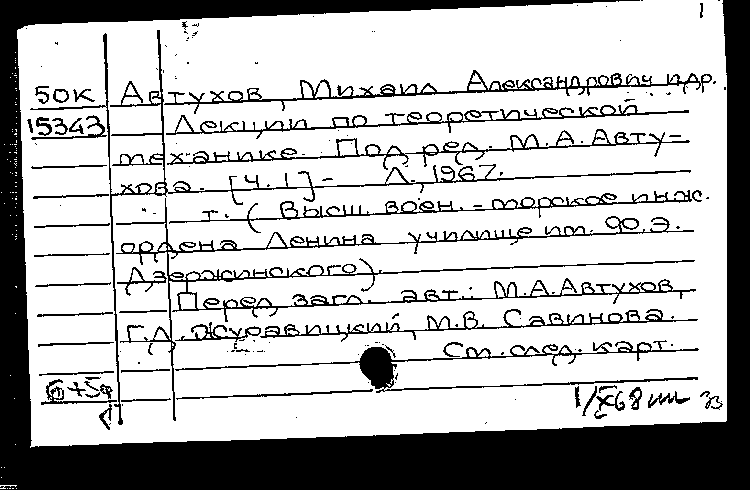 1
50К Автухов, Михаил Александрович и др.
15343 Лекции по теоретической
механике. Под ред. М.А.Авту-
хова. [Ч.1]- Л., 1967.
т. (Высш. воен.-морское инж.
ордена Ленина училище им. Ф.Э.
Дзержинского).
Перед загл. авт.: М.А.Автухов,
Г.Д. Журавицкий, М.В. Савинова.
См. след. карт.
1/X68